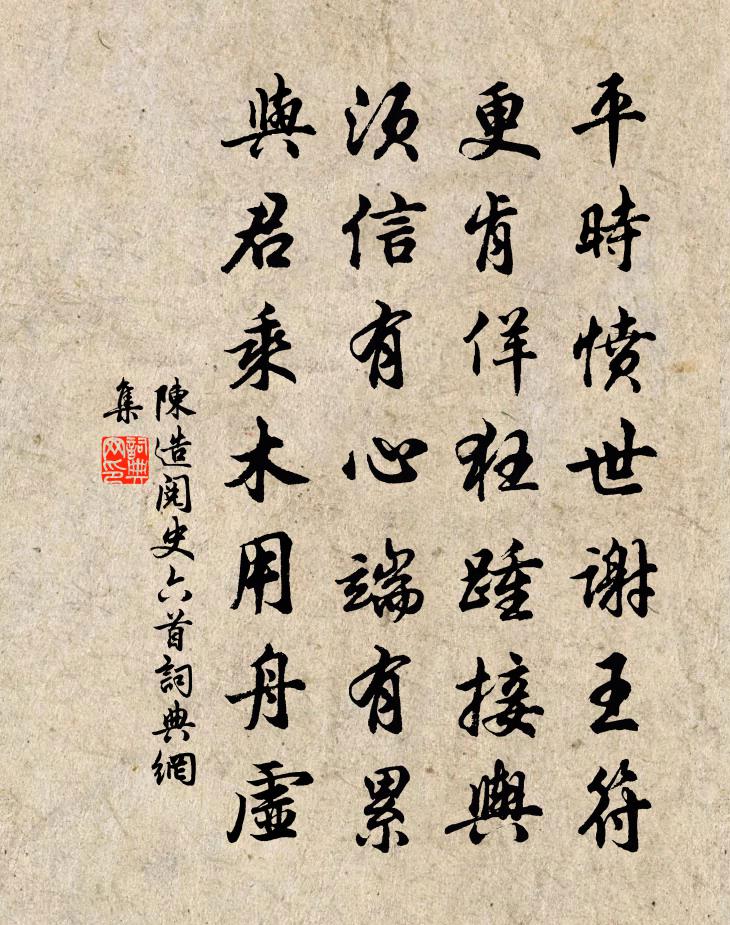 平時憤世謝王符
更肯佯狂踵接輿
須信有心端有累
與君乘木用舟虛
陳造閱史六首詞典網
集
詞典
网印